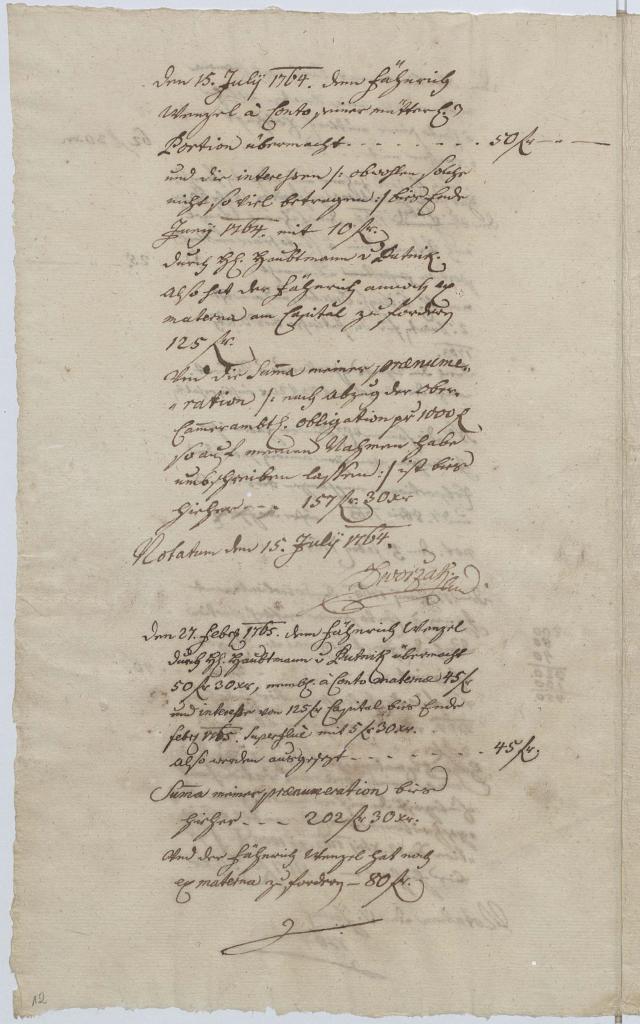 den 15. July 1764. dem Fähnrich
Wenzel à Conto seiner mütterl:
Portion übermacht - - - - - - - 50 fr - -
und die interessen /: obwohlen solche
nicht so viel betragen :/ bies Ende
Juny 1764. mit 10 fr.
durch H. Haubtmann v Butnik.
Also hat der Fähnrich annoch ex
materna am Capital zu fordern
125 fr.
Und die Suma meiner prænume-
ration /: nach Abzug der Ober-
Cammerambtl. obligation pr 1000 f
so auf meinen Nahmen habe
umbschreiben lassen :/ ist bies
hieher - - - 157 fr. 30 xr
Notatum den 15. July 1764.
Dworzak
den 27. Febry 1765. dem Fähnrich Wenzel
durch H. Haubtmann v Butnik übermacht
50 fr 30 xr, nembl. à Conto materna 45 fr
und interesse von 125 fr Capital bies Ende
febry 1765. mit 5 fr 30 xr.
Also werden ausgesezt - - - - - - - 45 fr.
Suma meiner prænumeration bies
hieher - - - 202 fr 30 xr.
Und der Fähnrich Wenzel hat noch
ex materna zu fordern - 80 fr.
12